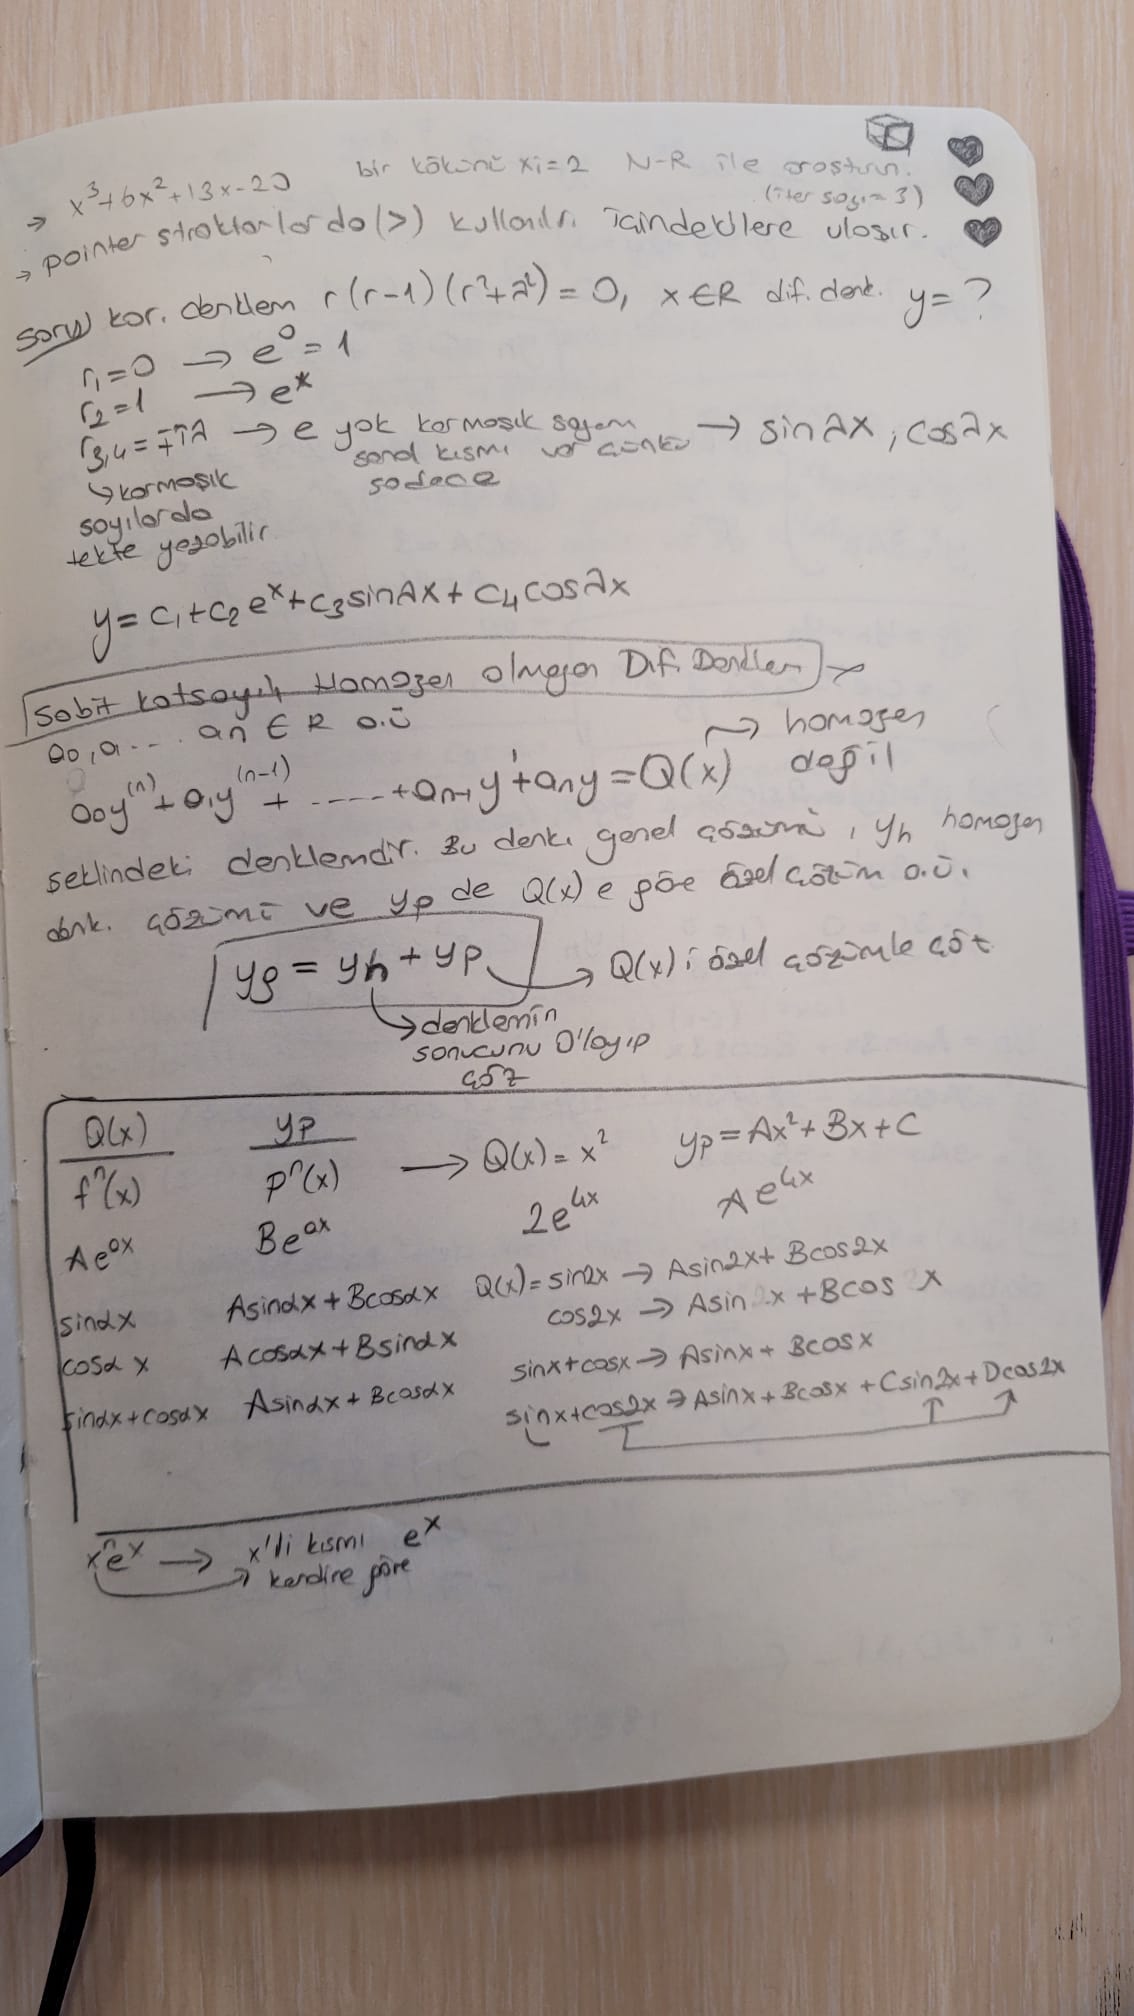 → x³+6x²+13x-20 bir kökünü xi=2 N-R ile araştırın.
(iter sayı=3)
→ pointer struktarlarda (>) kullanılır. İçindekilere ulaşır.
soru) kar. denklem r(r-1)(r²+λ²)=0, x∈R dif. denk. y=?
r₁=0 → e⁰=1
r₂=1 → eˣ
r₃,₄=∓iλ → e yok karmaşık sayının → sinλx, cosλx
sanal kısmı var çünkü
sadece
↳ karmaşık
sayılarda
tekte yazabilir
y=c₁+c₂eˣ+c₃sinλx+c₄cosλx
Sabit Katsayılı Homozen olmayan Dif. Denklem
a₀,a.... an ∈ R o.ü
a₀y⁽ⁿ⁾+a₁y⁽ⁿ⁻¹⁾+.....+aₙ₋₁y'+aₙy=Q(x) → homozen
değil
şeklindeki denklemdir. Bu denk. genel çözümü, yh homozen
denk. çözümü ve yp de Q(x) e göre özel çözüm o.ü.
yg = yh + yp → Q(x) i özel çözümle çöz
↳ denklemin
sonucunu 0'layıp
çöz
Q(x) yp
fⁿ(x) pⁿ(x) → Q(x)=x² yp=Ax²+Bx+C
Aeᵃˣ Beᵃˣ 2e⁴ˣ Ae⁴ˣ
sinαx Asinαx+Bcosαx Q(x)=sin2x → Asin2x+Bcos2x
cosαx Acosαx+Bsinαx cos2x → Asin2x+Bcos x
sinx+cosx → Asinx+Bcosx
sinαx+cosαx Asinαx+Bcosαx sinx+cos2x → Asinx+Bcosx+Csin2x+Dcos2x
xⁿeˣ → x'li kısmı eˣ
kendine göre